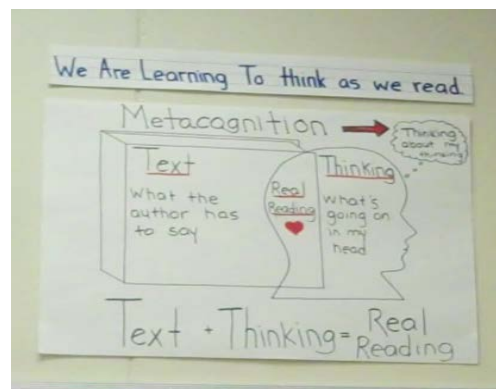 We Are Learning To think as we read
Metacognition
Thinking
about my
thinking
Text
What the
author has
to say
Real
Reading
Thinking
What's
going on
in my
head
Text + Thinking = Real
Reading